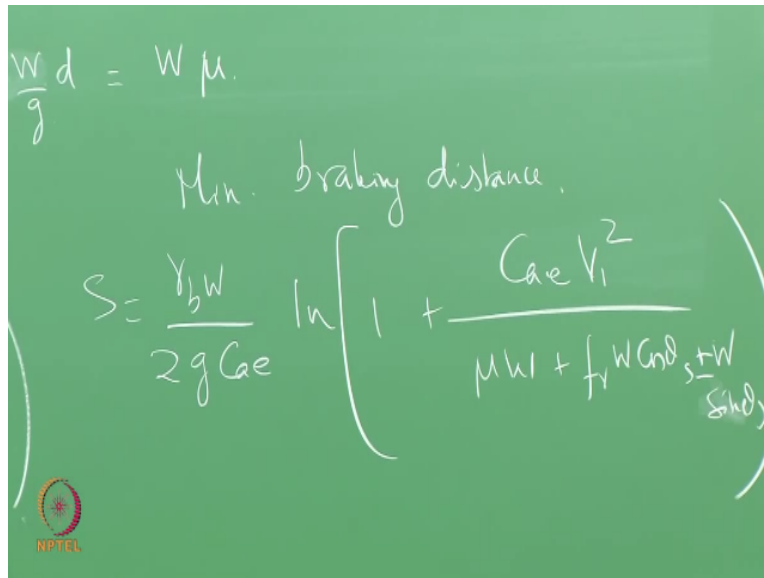 W/g d = W μ.
Min. braking distance.
S = γb W / 2 g Cae ln ( 1 + Cae V₁² / μW + fr W Cosθs ± W Sinθs )
NPTEL